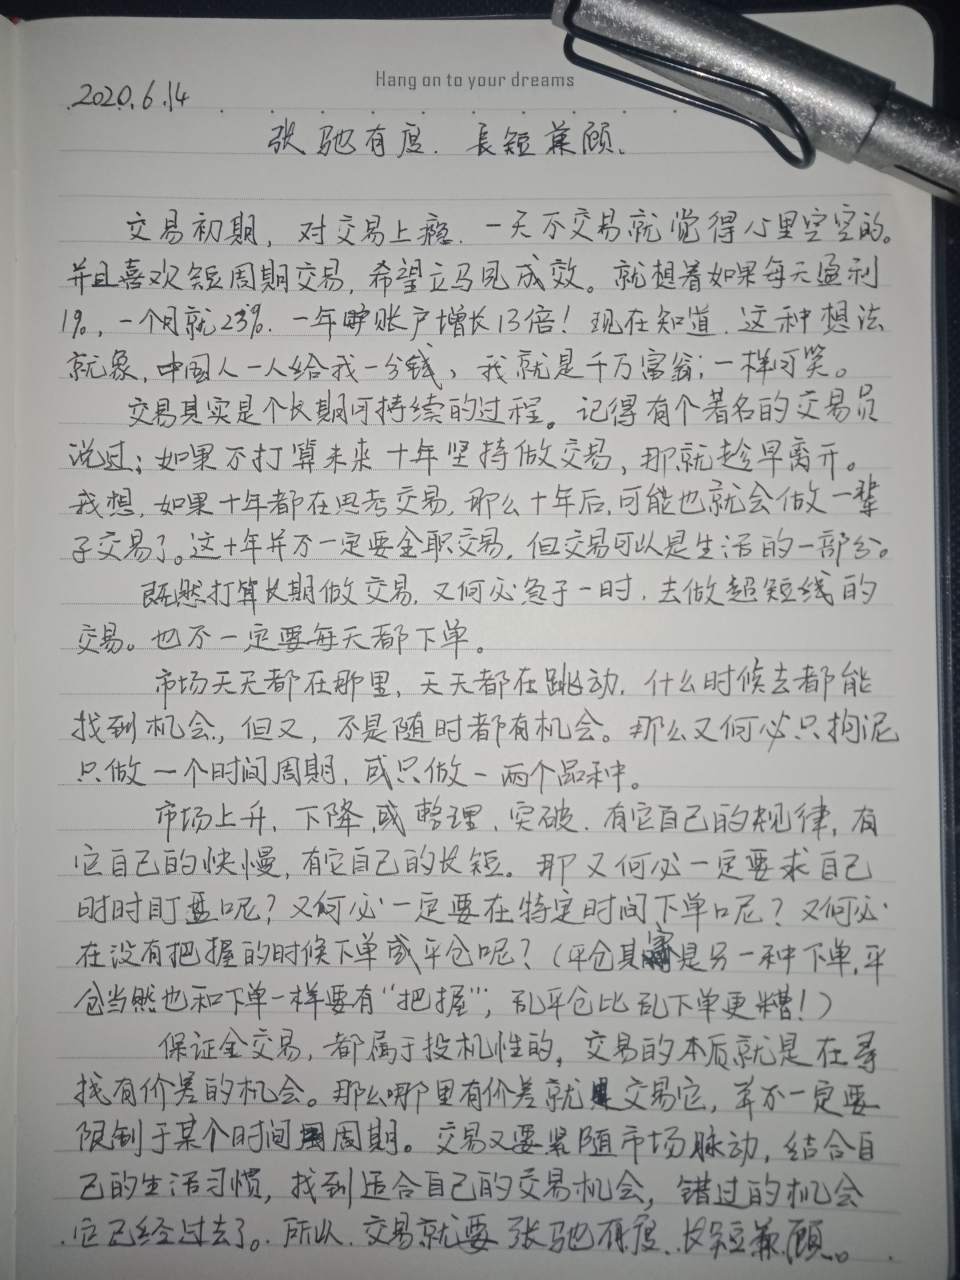 Hang on to your dreams
2020.6.14
张驰有度. 長短兼顾.
交易初期, 对交易上瘾. 一天不交易就觉得心里空空的。
并且喜欢短周期交易, 希望立马见成效。就想着如果每天盈利
1%, 一个月就23%. 一年账户增长13倍! 现在知道. 这种想法
就象, 中国人一人给我一分钱, 我就是千万富翁; 一样可笑。
交易其实是个长期可持续的过程。记得有个著名的交易员
说过: 如果不打算未来十年坚持做交易, 那就趁早离开。
我想, 如果十年都在思考交易, 那么十年后, 可能也就会做一辈
子交易了。这十年并不一定要全职交易, 但交易可以是生活的一部分。
既然打算长期做交易, 又何必急于一时, 去做超短线的
交易。也不一定要每天都下单。
市场天天都在那里, 天天都在跳动, 什么时候去都能
找到机会, 但又, 不是随时都有机会。那么又何必只拘泥
只做一个时间周期, 或只做一两个品种。
市场上升, 下降, 或整理, 突破, 有它自己的规律, 有
它自己的快慢, 有它自己的长短。那又何必一定要求自己
时时盯盘呢? 又何必一定要在特定时间下单呢? 又何必
在没有把握的时候下单或平仓呢? (平仓其实是另一种下单, 平
仓当然也和下单一样要有“把握”; 乱平仓比乱下单更糟!)
保证金交易, 都属于投机性的, 交易的本质就是在寻
找有价差的机会。那么哪里有价差就交易它, 并不一定要
限制于某个时间周期。交易又要紧随市场脉动, 结合自
己的生活习惯, 找到适合自己的交易机会, 错过的机会
它已经过去了。所以, 交易就要张驰有度, 长短兼顾。